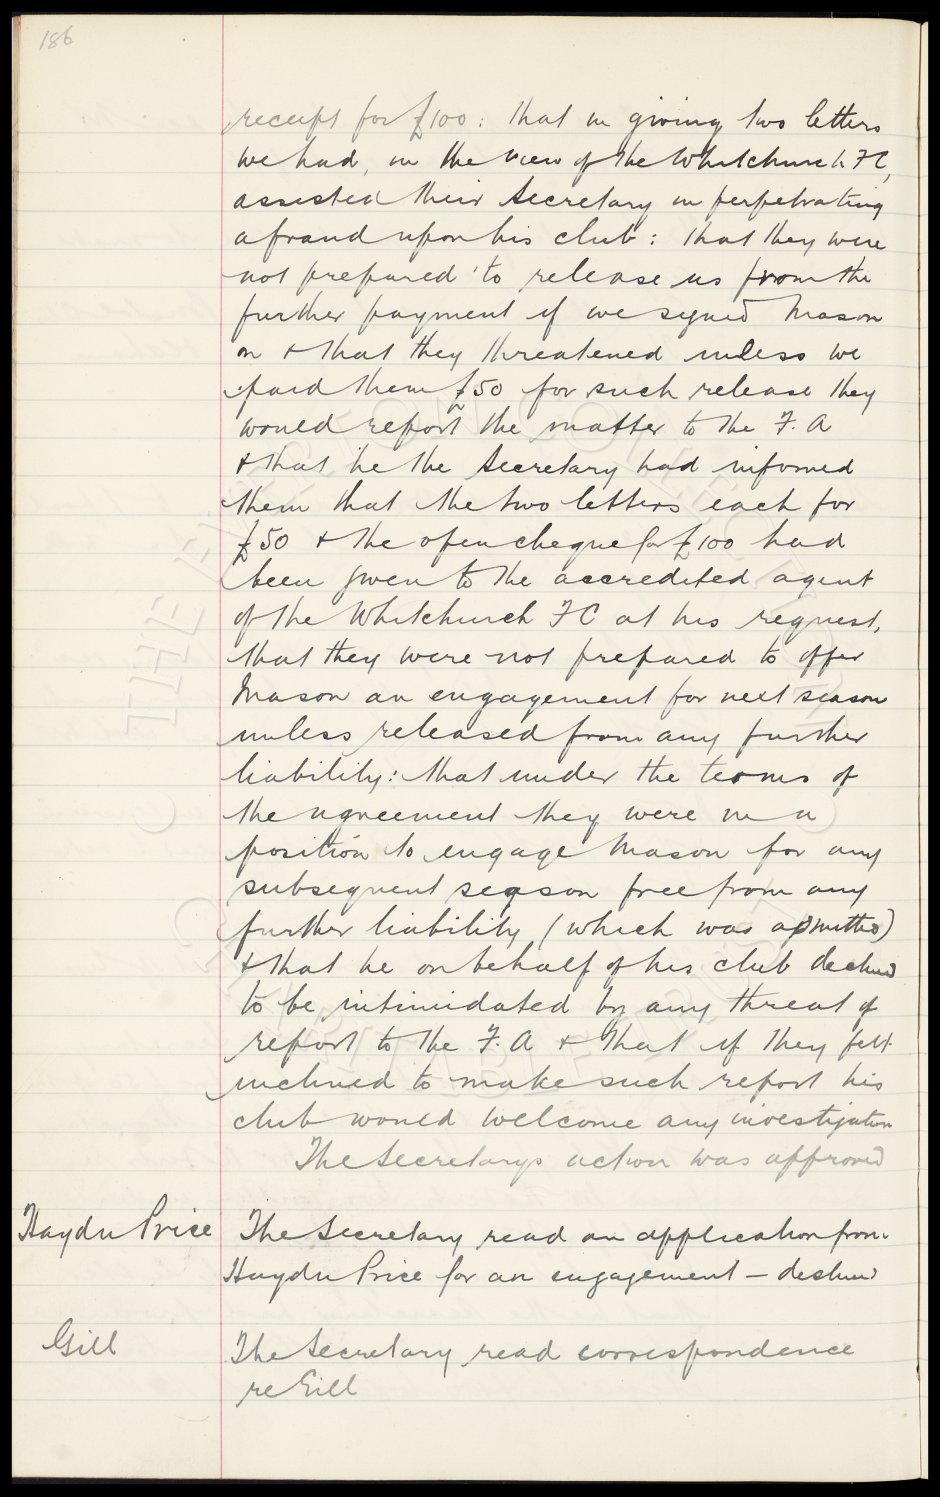 186
receipt for £100: that in giving two letters
we had, in the view of the Whitchurch F C,
assisted their Secretary in perpetrating
a fraud upon his club: that they were
not prepared to release us from the
further payment if we signed Mason
on & that they threatened unless we
paid them £50 for such release they
would report the matter to the F. A
& that he the Secretary had informed
them that the two letters each for
£50 & the open cheque for £100 had
been given to the accredited agent
of the Whitchurch F C at his request,
that they were not prepared to offer
Mason an engagement for next season
unless released from any further
liability: that under the terms of
the agreement they were in a
position to engage Mason for any
subsequent season free from any
further liability (which was admitted)
& that he on behalf of his club declined
to be intimidated by any threat of
report to the F. A & that if they felt
inclined to make such report his
club would welcome any investigation
The Secretarys action was approved
Haydn Price The Secretary read an application from
Haydn Price for an engagement - declined
Gill The Secretary read correspondence
re Gill
THE EVERTON COLLECTION
CHARITABLE TRUST